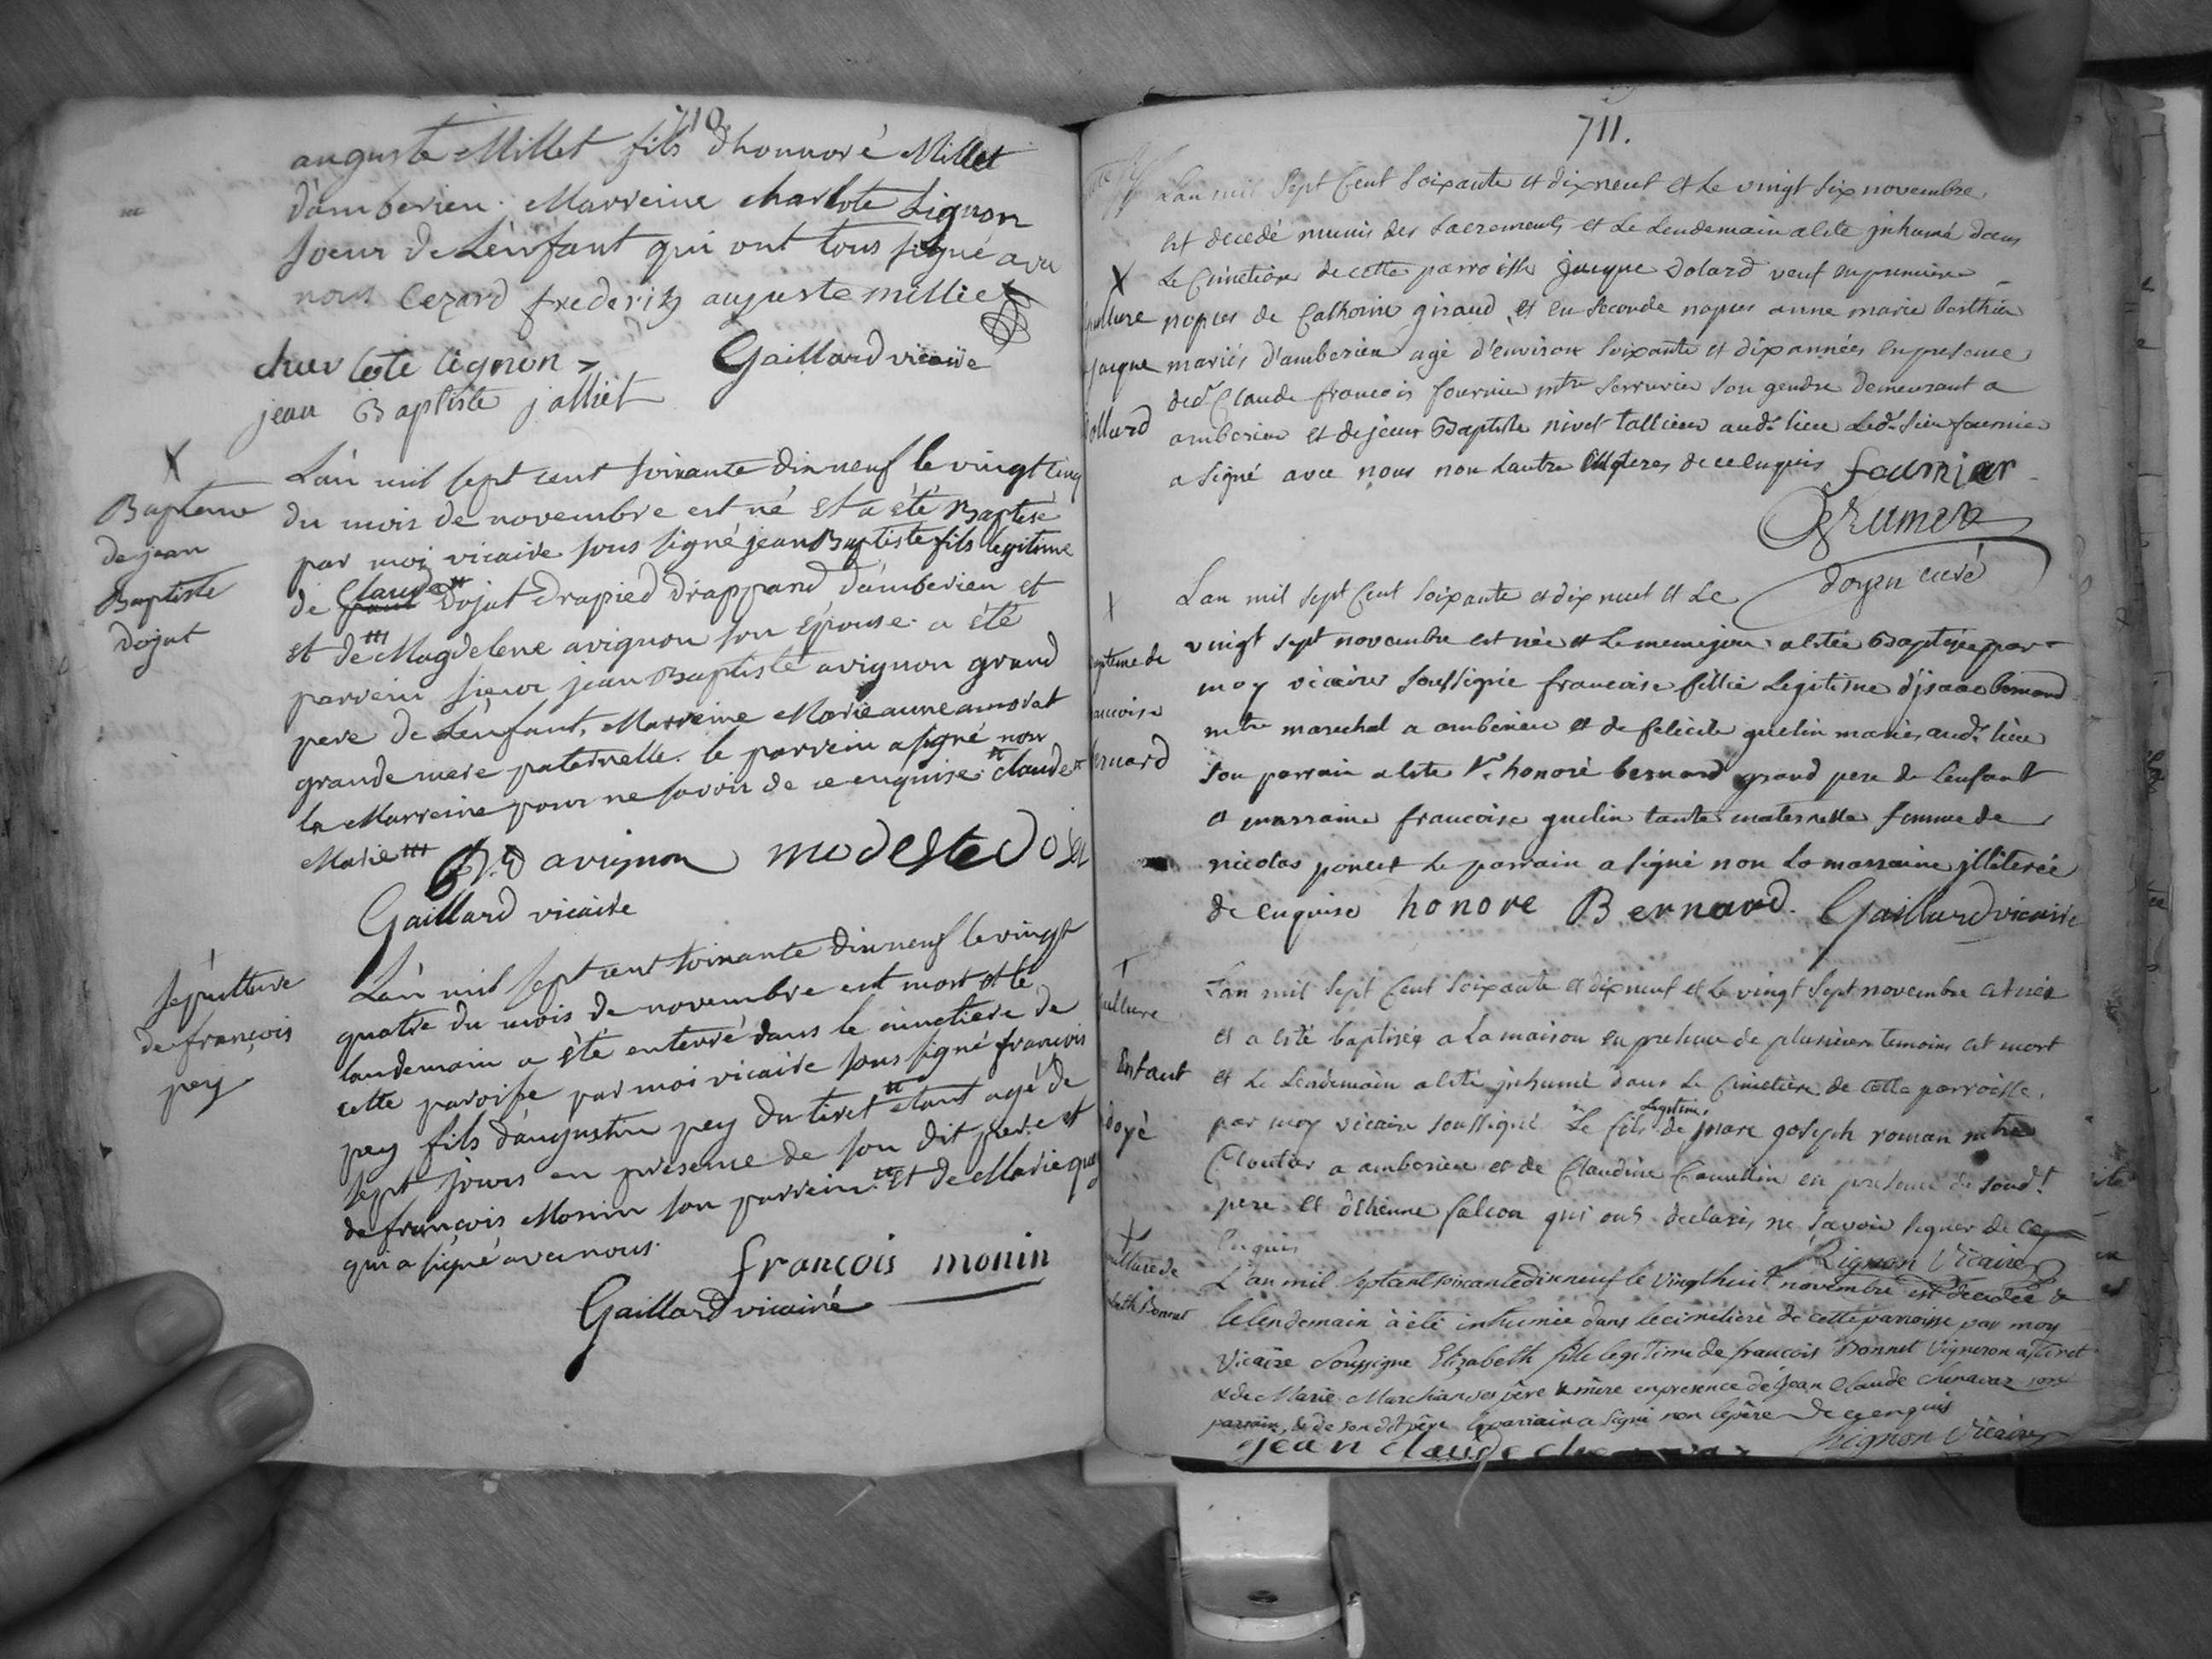 710.
auguste Millet fils d'honnoré Millet
d'amberieu. Marreine charlote Lignon
soeur de Lénfant qui ont tous signé avec
nous Cezard frederik auguste milliet
charlote lignon
Gaillard vicaire
jean Baptiste jalliet
X
Bapteme
de jean
Baptiste
dojat
Lán mil sept cent soixante dixneuf le vingt cinq
du mois de novembre est né et a été Baptisé
par moi vicaire sous signé jean Baptiste fils legitime
de Claude dojat drapied drappand d'amberieu et
et de Magdelene avignon son Epouse. a été
parrein sieur jean Baptiste avignon grand
pere de Lénfant, Marreine Marie anne amorat
grande mere paternelle. le parrein a signé non
la Marreine pour ne savoir de ce enquise. claude
Marie
avignon modeste
Gaillard vicaire
sépulture
de françois
pey
Lán mil sept cent soixante dixneuf le vingt
quatre du mois de novembre est mort et le
landemain a été enterré dans le cimetiere de
cette paroisse par moi vicaire sous signé francois
pey fils d'augustin pey du tiret etant agé de
sept jours en presence de son dit pere et
de francois Monin son parrein et de Marie
qui a signé avec nous.
françois monin
Gaillard vicaire
711.
X
jacque
Lan mil sept Cent soixante et dixneuf et le vingt six novembre
est decedé munis des sacrements et le lendemain a été jnhumé dans
Le Cimetiere de cette parroisse jacque dolard veuf en premiere
nopces de Catherine giraud et en seconde nopces anne marie berthier
mariés d'amberieu agé d'environ soixante et dix années en presence
de Sr Claude francois fournier mtre serrurier son gendre demeurant a
amberieu et de jean Baptiste nivet tallieur aud. lieu Led. sieur fournier
a signé avec nous non lautre de ce enquis fournier
doyen curé
Lan mil sept Cent soixante et dix neuf et Le
vingt sept novembre est née et le meme jour a été Baptisée par
moy vicaire soussigné francoise fillie Legitime d'jsaac bernard
mtre marechal a amberieu et de felicité guelin mariés aud. lieu
son parrain a été honoré bernard grand pere de Lenfant
et marraine francoise guelin tante maternelle femme de
nicolas poncet Le parrain a signé non La marraine jlliterée
de enquise honore Bernard. Gaillard vicaire
Enfant
Lan mil sept Cent soixante et dixneuf et le vingt sept novembre
et a été baptisé a la maison en presence de plusieurs temoins est mort
et Le Lendemain a été jnhumé dans Le Cimetiere de cette parroisse
par moy vicaire soussigné Le fils legitime de marc joseph roman mtre
Cloutier a amberieu et de Claudine en presence de sond.
pere et d'Etienne falcon qui ont declaré ne savoir signer de ce
enquis
Lignon Vicaire
L'an mil sept cent soixante dixneuf le vingt huit novembre est decedée &
le lendemain à été inhumée dans le cimetiere de cette parroisse par moy
Vicaire Soussigné Elizabeth fille legitime de francois Bonnet Vigneron a tiret
& de Marie Marchand ses père & mère en presence de jean claude chenavaz son
parrain, & de son dit père le parrain a signé non le père de ce enquis
jean claude
Lignon Vicaire